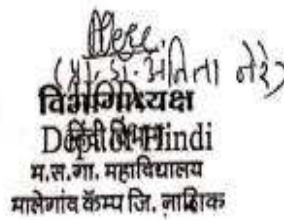 (प्रा. डॉ. अनिता नेरे)
विभागाध्यक्ष
HOD
Dept of Hindi
हिंदी विभाग
म.स.गा. महाविद्यालय
मालेगांव कॅम्प जि. नाशिक